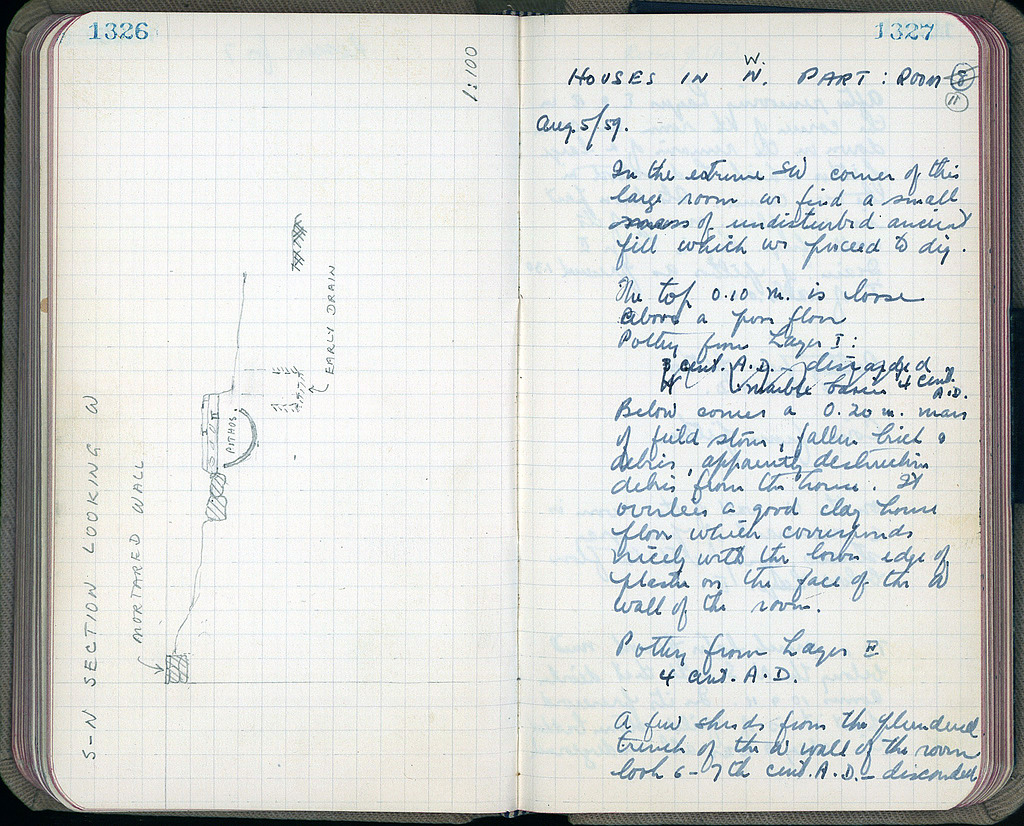 1326
1:100
S-N SECTION LOOKING W
MORTARED WALL
PITHOS
I
II
EARLY DRAIN
1327
W.
HOUSES IN N. PART: ROOM 8
11
Aug. 5/59.
In the extreme SW corner of this
large room we find a small
mass of undisturbed ancient
fill which we proceed to dig.
The top 0.10 m. is loose
above a poor floor
Pottery from Layer I:
cent. A.D. – discarded
4 marble basin 4 cent.
A.D.
Below comes a 0.20 m. mass
of field stone, fallen brick
debris, apparently destruction
debris from the house. It
overlies a good clay house
floor which corresponds
nicely with the lower edge of
plaster on the face of the W
wall of the room.
Pottery from Layer II
4 cent. A.D.
A few sherds from the plundered
trench of the W wall of the room
look 6-7th cent. A.D. – discarded